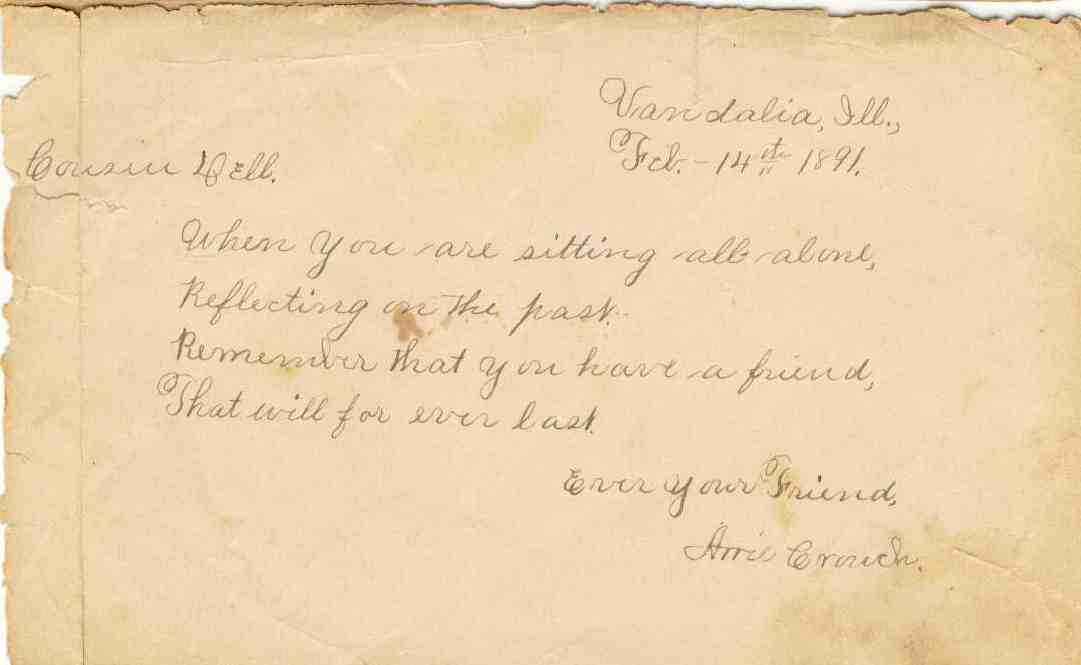 Vandalia, Ill.,
Feb. - 14th 1891.
Cousin Dell.
When you are sitting all alone,
Reflecting on the past.
Remember that you have a friend,
That will for ever last.
Ever your Friend,
Crouch.